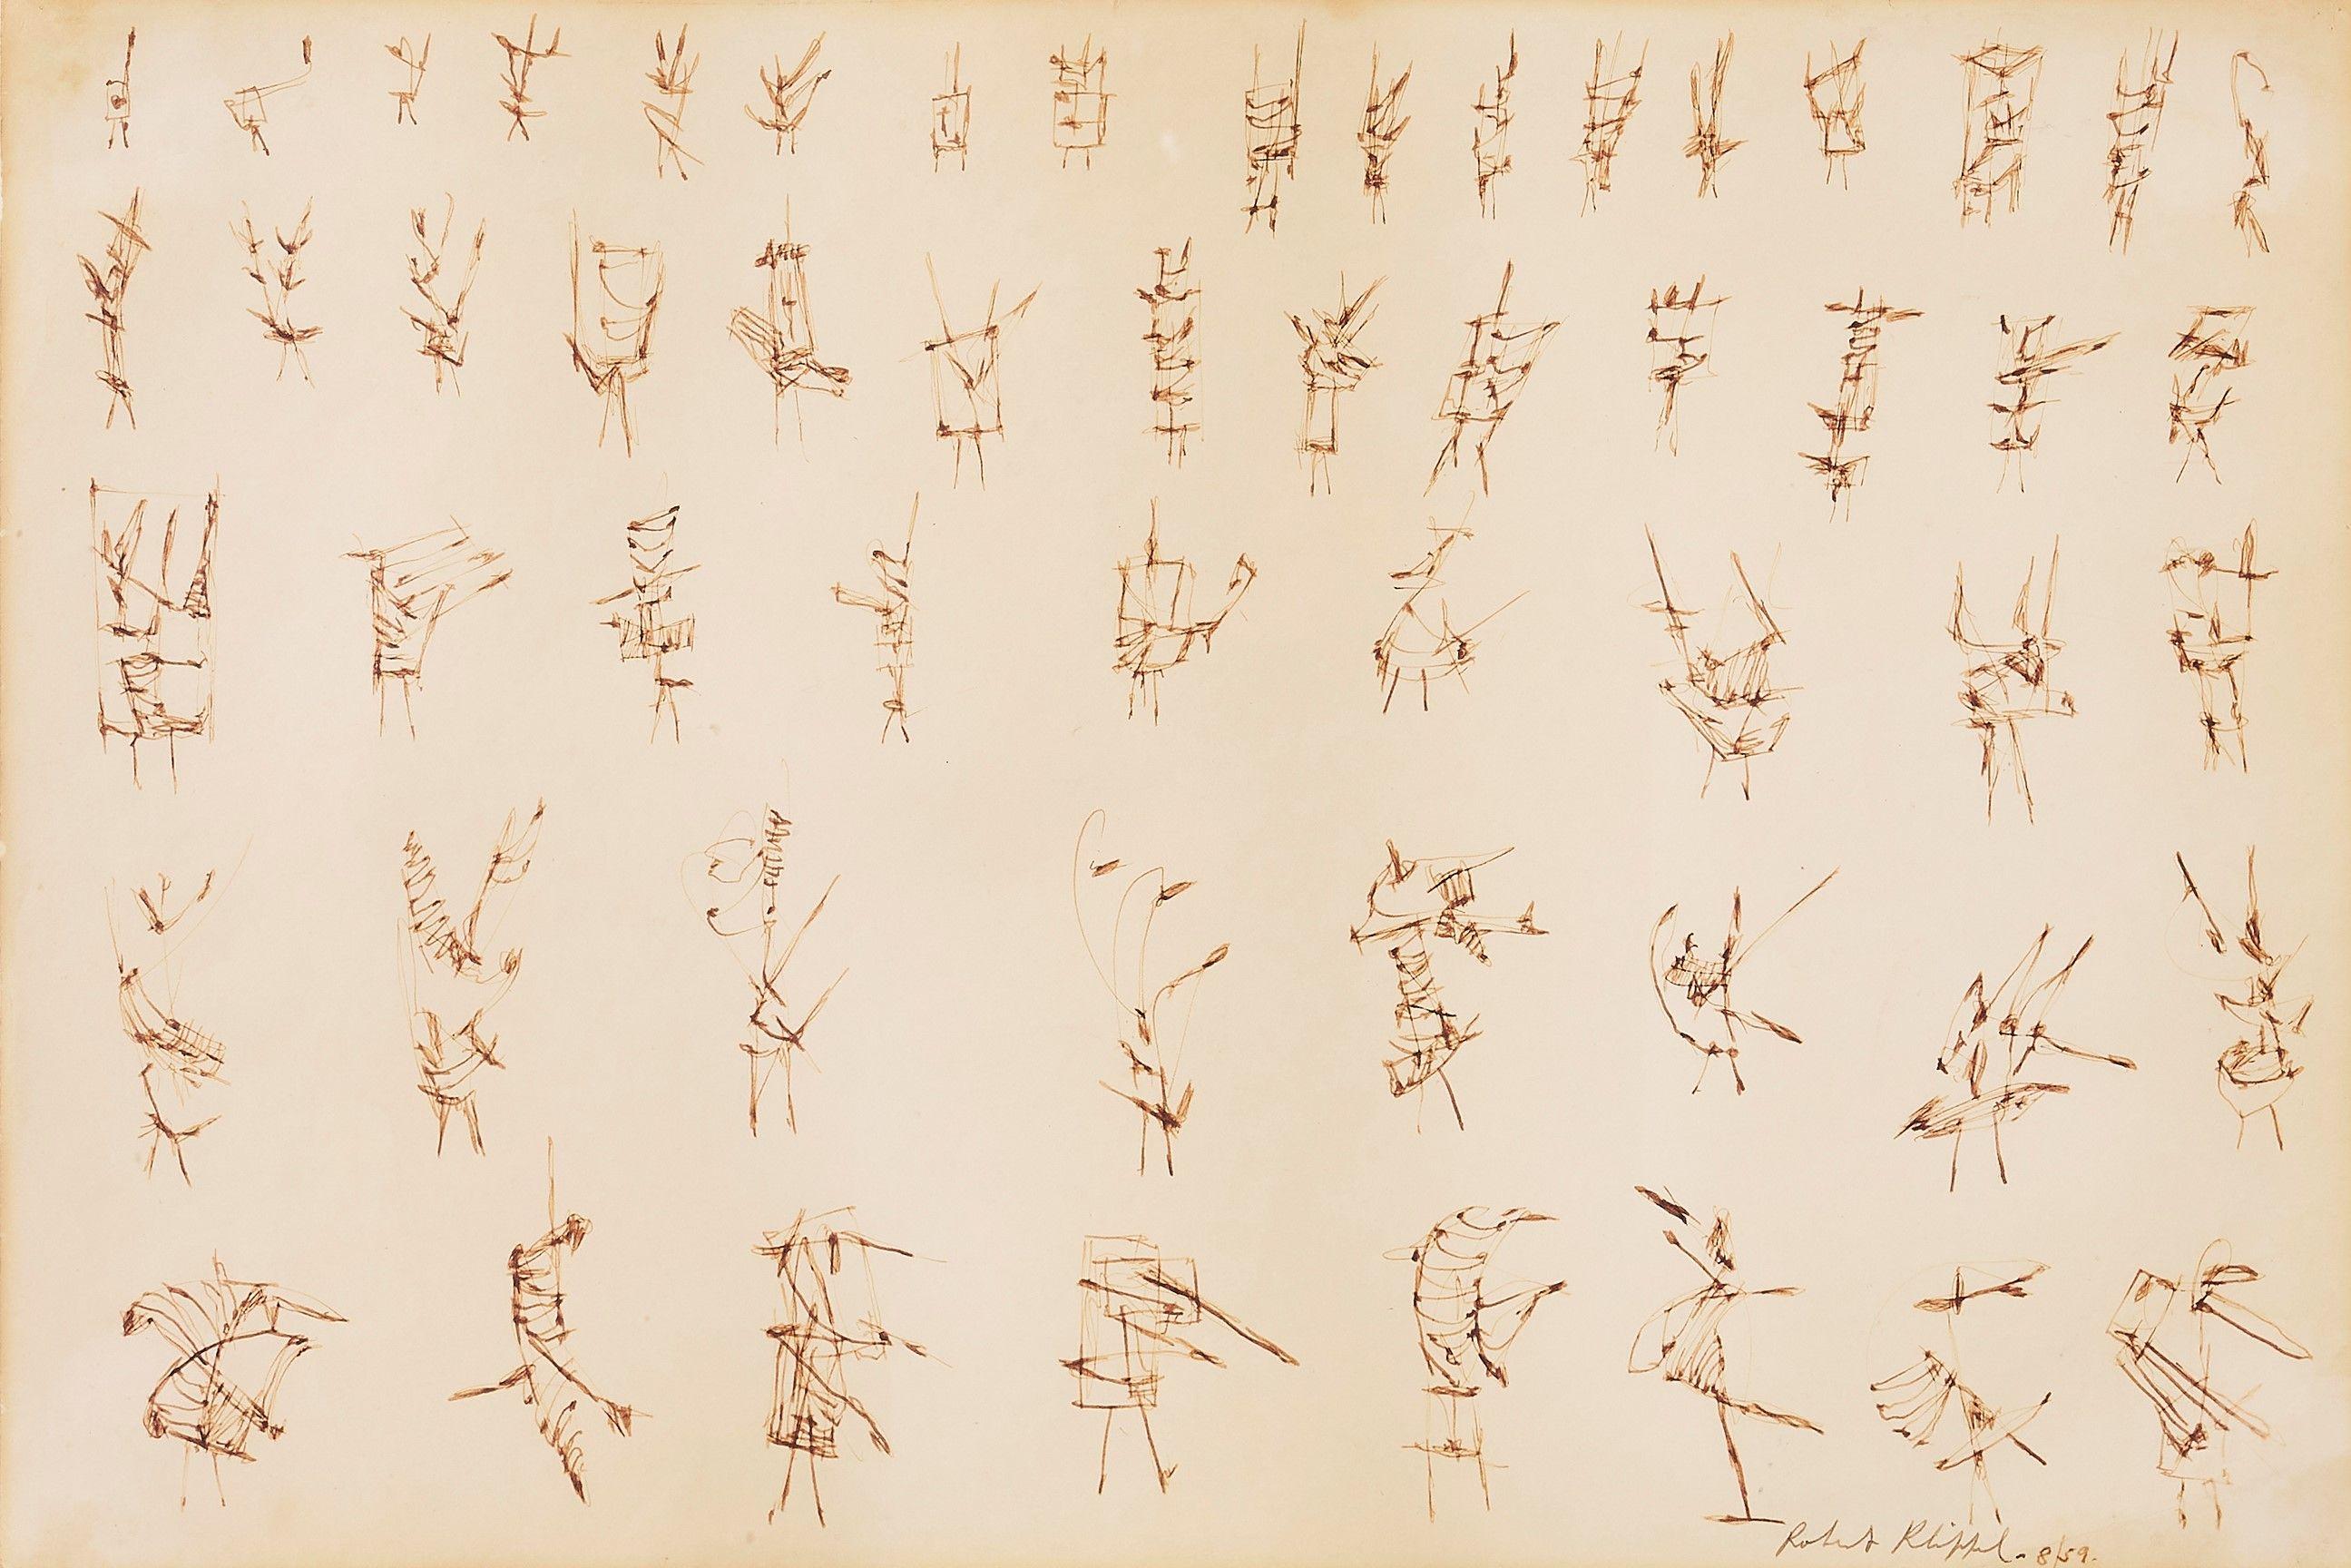 Robert Klippel - 8/59.